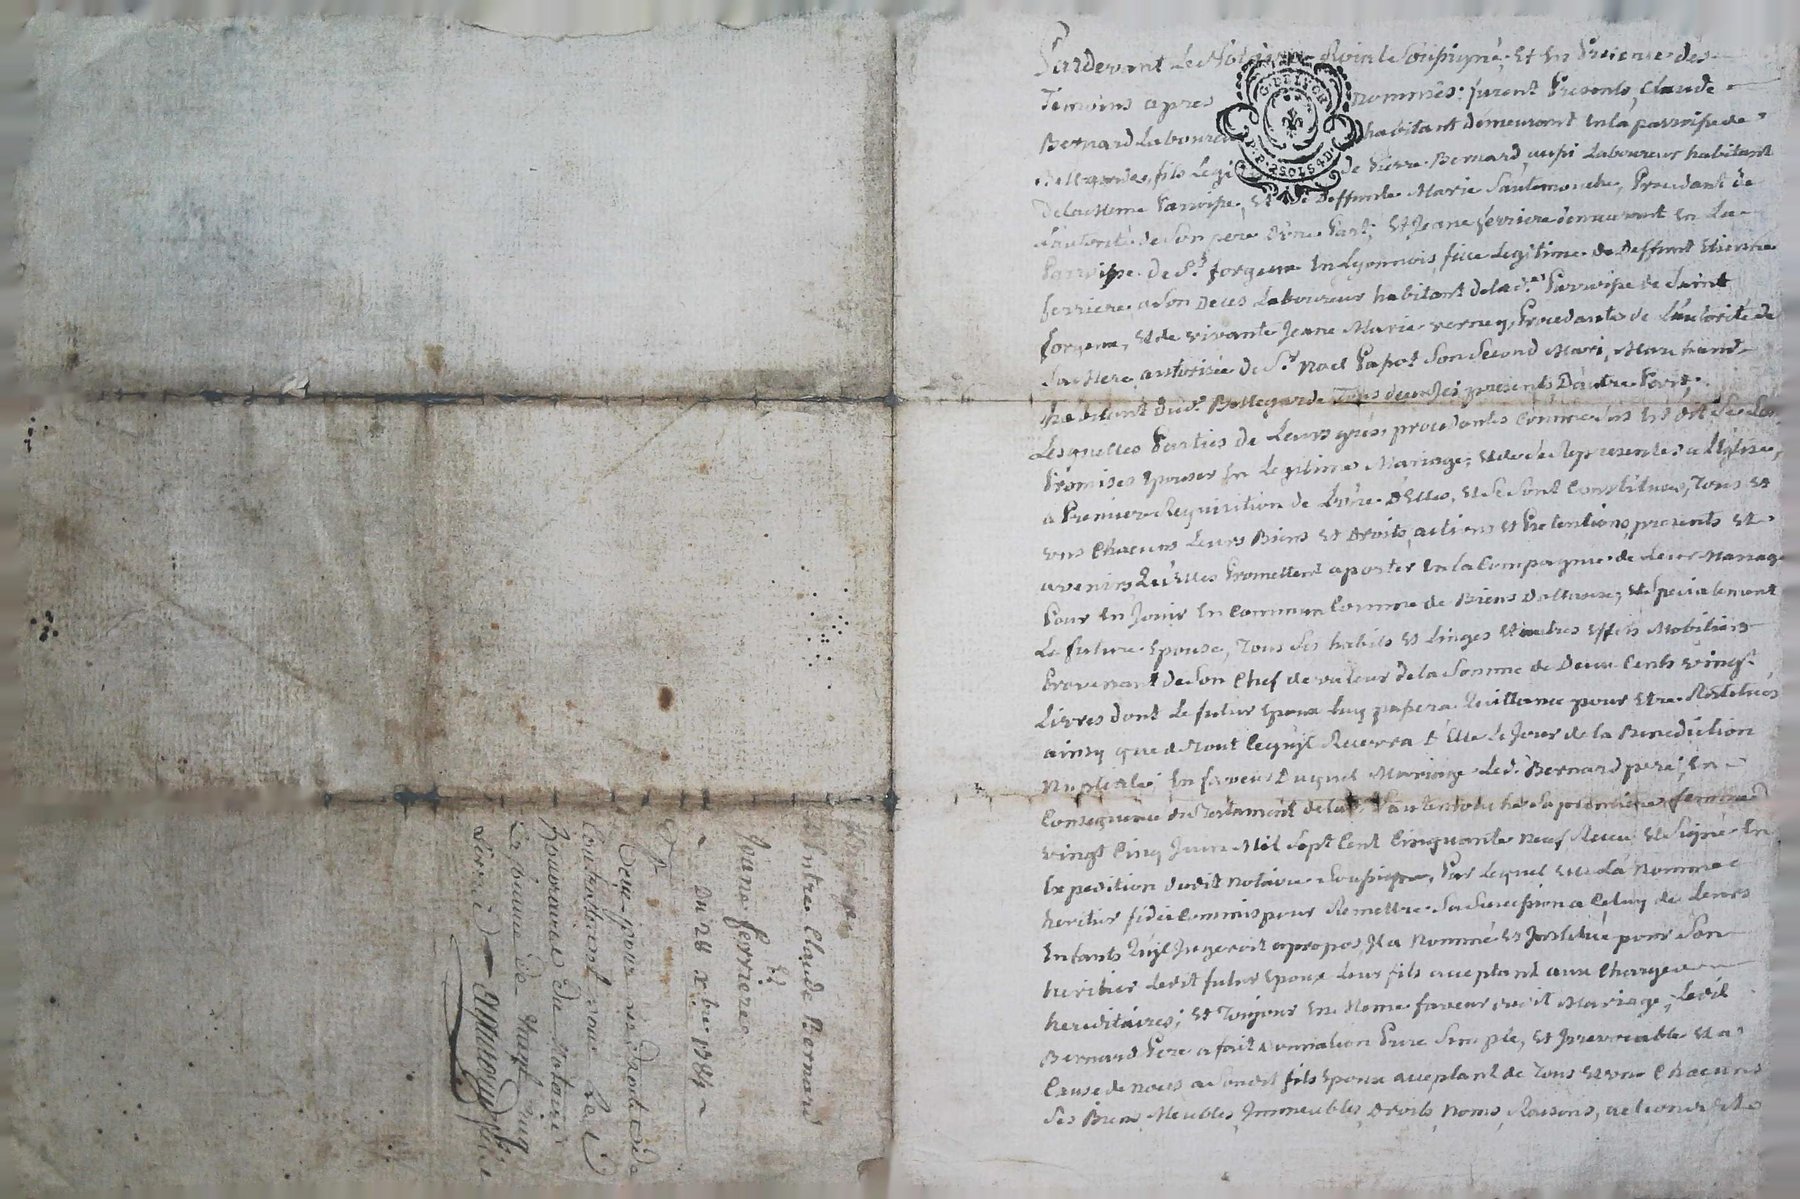 Pardevant Le Notaire Roial Soussigné, Et En Presence des
Temoins apres nommés: furent Presents, Claude
Bernard Laboureur habitant demeurant En la parroisse de
Bellegarde, fils Legi de Pierre Bernard, aussi Laboureur habitant
de la Meme Parroisse, Et de Deffunte Marie Sautemouche, Procedant de
L'autorité de Son pere d'Une Part; Et Jeane ferriere demeurant En La
Parroisse de St. forgeux En Lyonnois, fille Legitime de Deffunt Etienne
ferriere a Son Deces Laboureur habitant de lad.e Parroisse de Saint
forgeux, Et de vivante Jeane Marie verney, Procedante de L'autorité de
Sa Mere, autorisée de Sr. Noel Papot Son Second Mari, Marchand
habitant dud. Bellegarde Tous deux Ici presents, D'autre Part;
Lesquelles Parties de Leurs grés, procedantes Comme dos Est dit Se Sont
Promises Epouser En Legitime Mariage, Et de Se Representer a L'Eglise,
a Premiere Requisition de L'Une D'Elles, Et Se Sont Constituées, Tous Et
uns Chacuns Leurs Biens Et Droits, actions Et Pretentions, presents Et
avenirs Qu'Elles Promettent aporter En la Compagnie de Leur Mariage
Pour En Jouir En Commun Comme de Biens Dottaux; Et Specialement
La future Epouse, Tous Ses habits Et Linges Et autres Effets Mobiliers
Provenant de Son Chef de valeur de la Somme de Deux Cents vingt
Livres dont Le futur Epoux Luy passera Quittance pour Etre Restitués
ainsy que de Tout Ce qu'il Recevra d'Elle Le Jour de la Benediction
Nuptiale; En faveur Duquel Mariage Led. Bernard pere, En
Consequence du Testament de lad. Sautemouche Sa premiere femme du
vingt Cinq Juin Mil Sept Cent Cinquante Neuf Receu Et Signé En
Expedition dudit Notaire Soussigné, Par Lequel Elle L'a Nommé
heritier fideicommis pour Remettre Sa Succession a Celuy de Leurs
Enfants Qu'il Jugeroit apropos, Il a Nommé Et Institué pour Son
heritier Ledit futur Epoux Leur fils acceptant aux Charges
hereditaires; Et Toujours En Meme faveur dudit Mariage, Ledit
Bernard Pere a fait donnation Pure Simple, Et Irrevocable Et a
Cause de noces a Sondit fils Epoux acceptant de Tous Et uns Chacuns
Ses Biens, Meubles, Immeubles, Droits, Noms, Raisons, actions
Mariage
D'Entre Claude Bernard
Et
Jeane ferriere
Du 28 Xbre 1784
Receu pour
Controllant pour les
honoraires du Notaire
La somme de
Livres